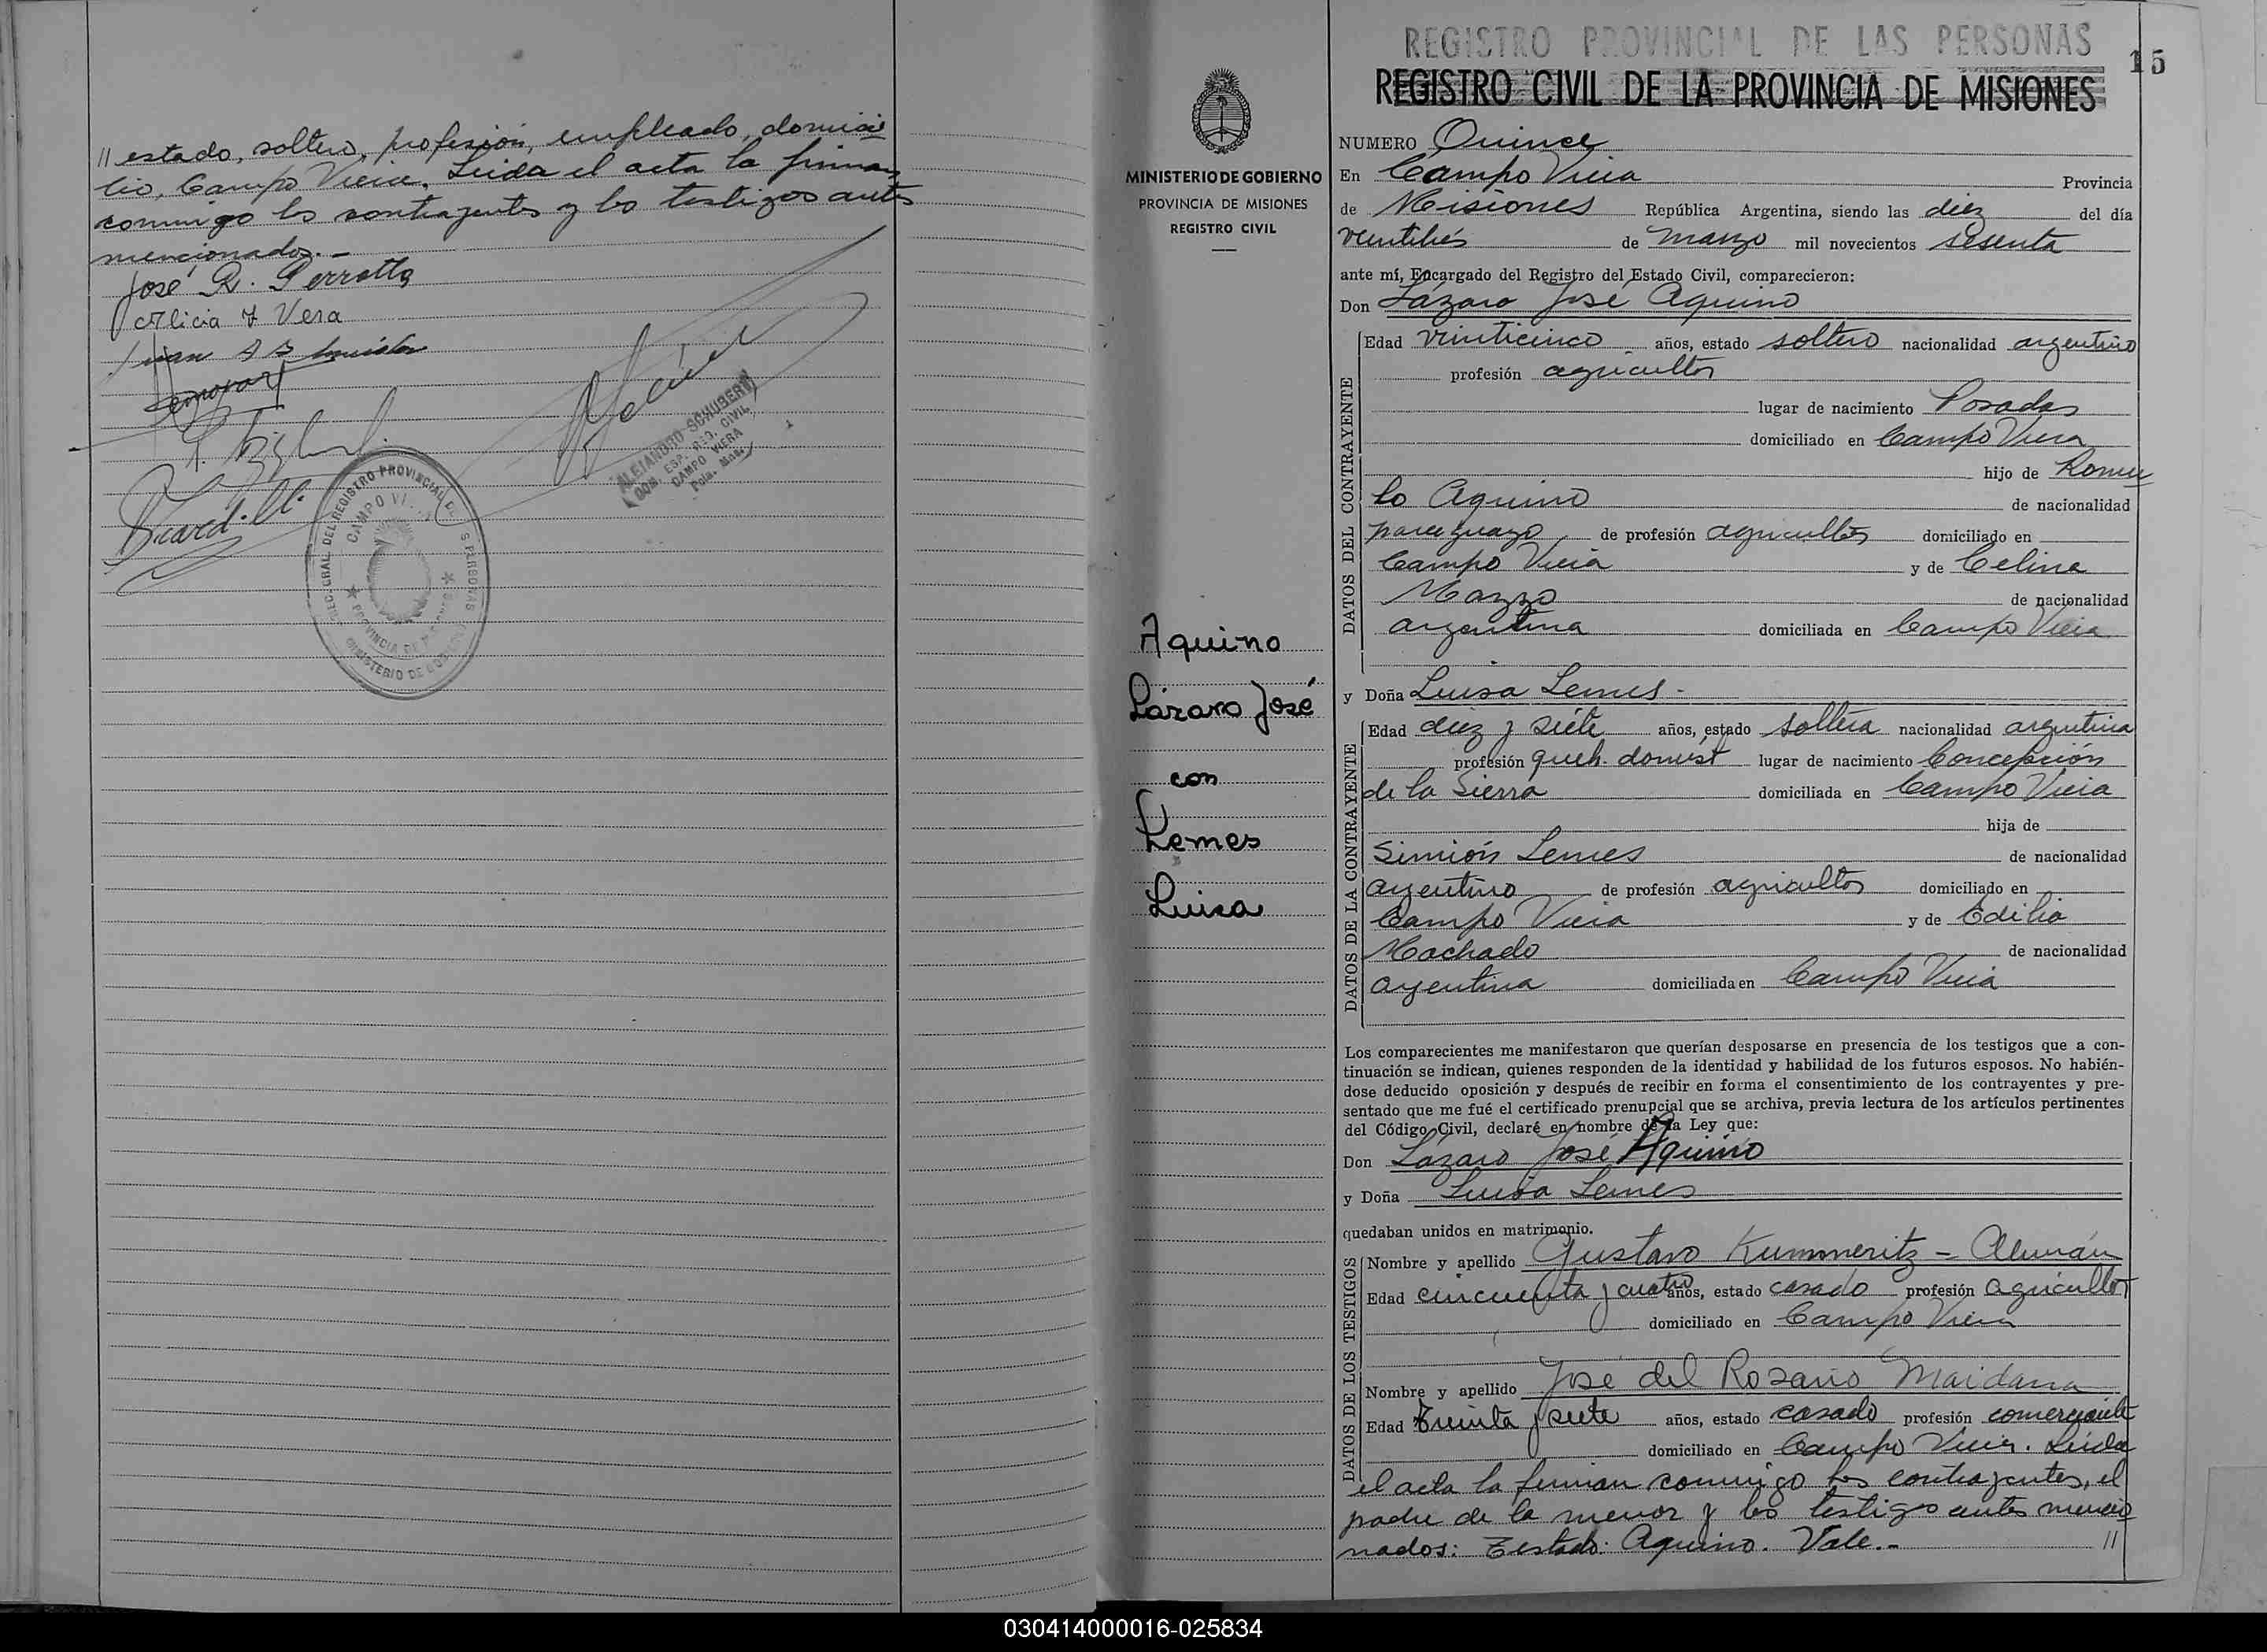 // estado, soltero, profesión, empleado, domici
lio, Campo Viera. Leida el acta la firman
conmigo los contrayentes y los testigos antes
mencionados.-
José R. Perrotta
Alicia Y Vera
Juan
ALEJANDRO SCHUBERT
ESP. REG. CIVIL
CAMPO VIERA
Pcia. Mnes.
GRAL DEL REGISTRO PROVINCIAL DE LAS PERSONAS
CAMPO VI
PROVINCIA DE MISIONES
MINISTERIO DE GOBIERNO
MINISTERIO DE GOBIERNO
PROVINCIA DE MISIONES
REGISTRO CIVIL
Aquino
Lázaro José
con
Lemes
Luisa
REGISTRO PROVINCIAL DE LAS PERSONAS
15
REGISTRO CIVIL DE LA PROVINCIA DE MISIONES
NUMERO Quince
En Campo Viera Provincia
de Misiones República Argentina, siendo las diez del día
ventitrés de marzo mil novecientos sesenta
ante mí, Encargado del Registro del Estado Civil, comparecieron:
Don Lázaro José Aquino
DATOS DEL CONTRAYENTE
Edad vinticinco años, estado soltero nacionalidad argentino
profesión agricultor
lugar de nacimiento Posadas
domiciliado en Campo Viera
hijo de Romu
lo Aquino de nacionalidad
paraguayo de profesión agricultor domiciliado en
Campo Viera y de Celina
Mazzo de nacionalidad
argentina domiciliada en Campo Viera
y Doña Luisa Lemes.-
DATOS DE LA CONTRAYENTE
Edad diez y siete años, estado soltera nacionalidad argentina
profesión queh. domést lugar de nacimiento Concepción
de la Sierra domiciliada en Campo Viera
hija de
Simión Lemes de nacionalidad
argentino de profesión agricultor domiciliado en
Campo Viera y de Edilia
Machado de nacionalidad
argentina domiciliada en Campo Viera
Los comparecientes me manifestaron que querían desposarse en presencia de los testigos que a con-
tinuación se indican, quienes responden de la identidad y habilidad de los futuros esposos. No habién-
dose deducido oposición y después de recibir en forma el consentimiento de los contrayentes y pre-
sentado que me fué el certificado prenupcial que se archiva, previa lectura de los artículos pertinentes
del Código Civil, declaré en nombre de la Ley que:
Don Lázaro José Aquino
y Doña Luisa Lemes
quedaban unidos en matrimonio.
DATOS DE LOS TESTIGOS
Nombre y apellido Gustavo Kummeritz - Alemán
Edad cincuenta y cuatro años, estado casado profesión agricultor
domiciliado en Campo Viera
Nombre y apellido José del Rosario Maidana
Edad treinta y siete años, estado casado profesión comerciante
domiciliado en Campo Viera. Leida
el acta la firman conmigo los contrayentes, el
padre de la menor y los testigos antes mencio
nados: Testado: Aquino. Vale.- //
030414000016-025834